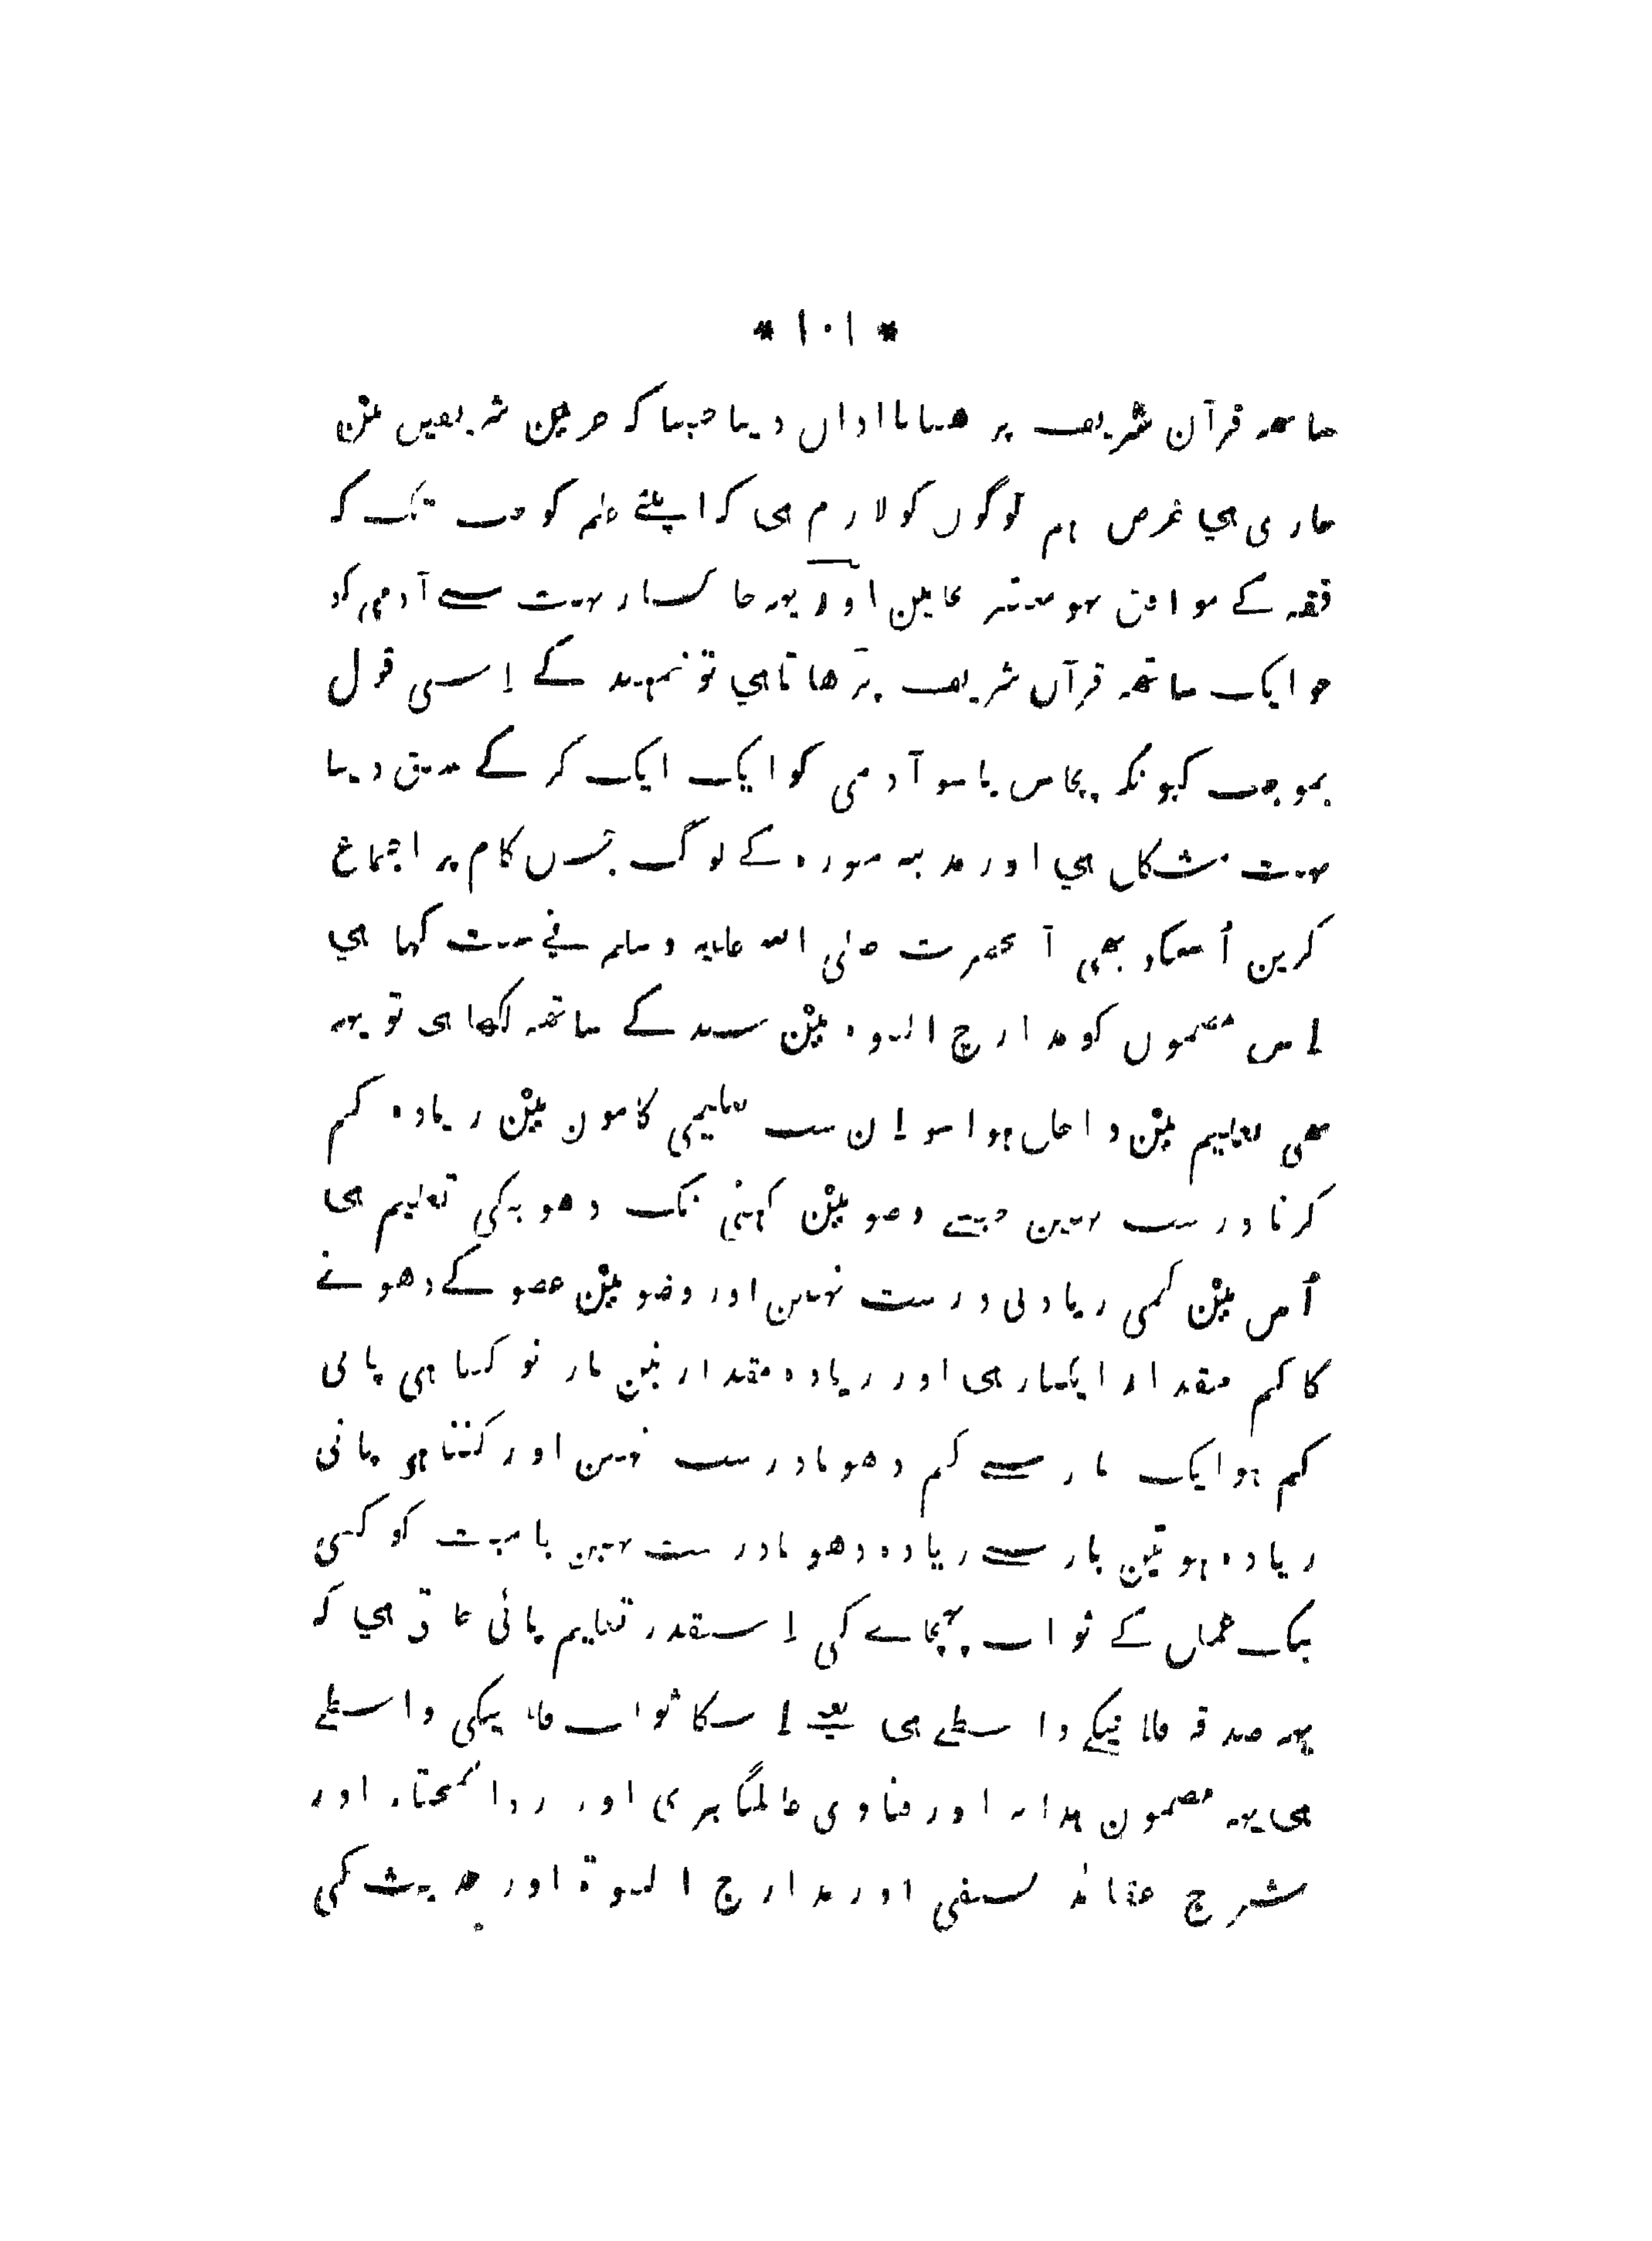 * ۱۰۱ *
ساتھہ قرآن شریف پڑھنا یا اذان دینا جیسا کہ حرمین شریفین مین
جاری ہی غرض ہم لوگون کو لازم ہی کہ اپنے علم کو جب تک کہ
فقہ کے موافق ہو معتبر جانین اور یہہ خاکسار بہت سے آدمی کو
جو ایک ساتھہ قرآن شریف پڑھاتا ہی تو تمہید کے اِسی قول
بموجب کیونکہ پچاس یا سو آدمی کو ایک ایک کر کے سبق دینا
بہت مشکل ہی اور مدینہ منورہ کے لوگ جس کام پر اجماع
کرین اُسکو بھی آنحضرت صلی اللہ علیہ وسلم نے سنت کہا ہی
اِس مضمون کو مدارج النبوہ مین سند کے ساتھہ لکھا ہی تو یہہ
بھی تعلیم مین داخل ہوا سو اِن سب تعلیمی کامون مین زیادہ کم
کرنا درست نہین جیسے وضو مین کہنی تک دھونے کی تعلیم ہی
اُس مین کمی زیادتی درست نہین اور وضو مین عضو کے دھونے
کا کم مقدار ایکبار ہی اور زیادہ مقدار تین بار تو کیسا ہی پانی
کم ہو ایک بار سے کم دھونا درست نہین اور کتنا ہی پانی
زیادہ ہو تین بار سے زیادہ دھونا درست نہین یا میت کو کسی
نیک عمل کے ثواب پہنچانے کی اِسقدر تعلیم پائی جاتی ہی کہ
یہہ صدقہ فلانیکے واسطے ہی یعنے اِسکا ثواب فلانیکی واسطے
ہی یہہ مضمون ہدایہ اور فتاوی عالمگیری اور ردالمحتار اور
شرح عقائد نسفی اور مدارج النبوة اور حدیث کی